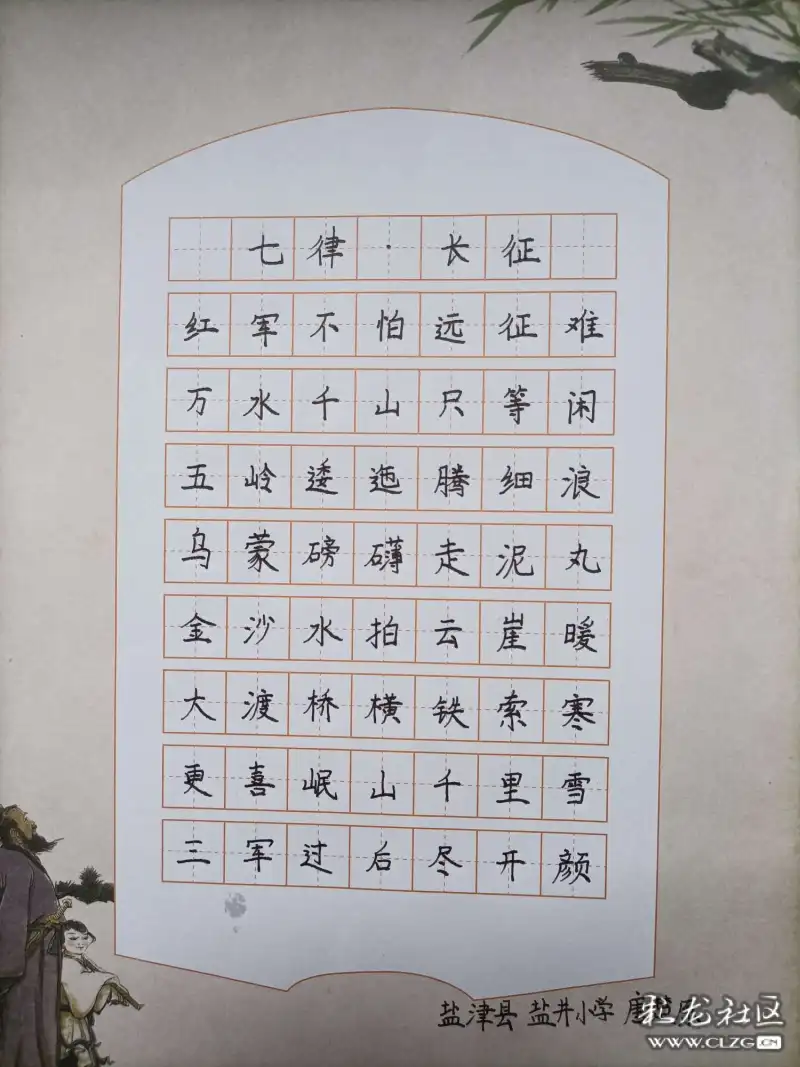 七律·长征
红军不怕远征难
万水千山只等闲
五岭逶迤腾细浪
乌蒙磅礴走泥丸
金沙水拍云崖暖
大渡桥横铁索寒
更喜岷山千里雪
三军过后尽开颜
盐津县 盐井小学 唐
社区
WWW.CLZG.CN